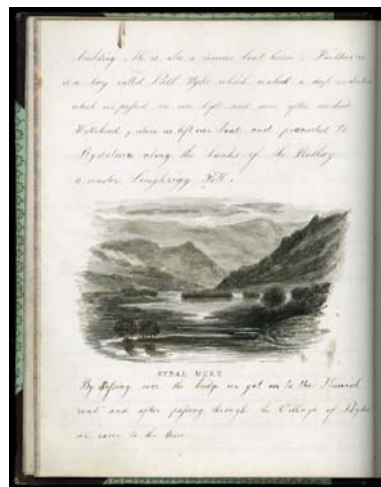 building. There is also a curious boat house. Further on
is a bay called Pull Wyke which makes a deep
which we passed on our left and soon after reached
Waterhead, where we left our boat, and proceeded to
Rydalmere along the banks of the Rothay
& under Loughrigg Fell.
RYDAL MERE
By passing over the bridge we got on to the Keswick
road and after passing through the Village of Rydal
we came to the Mere